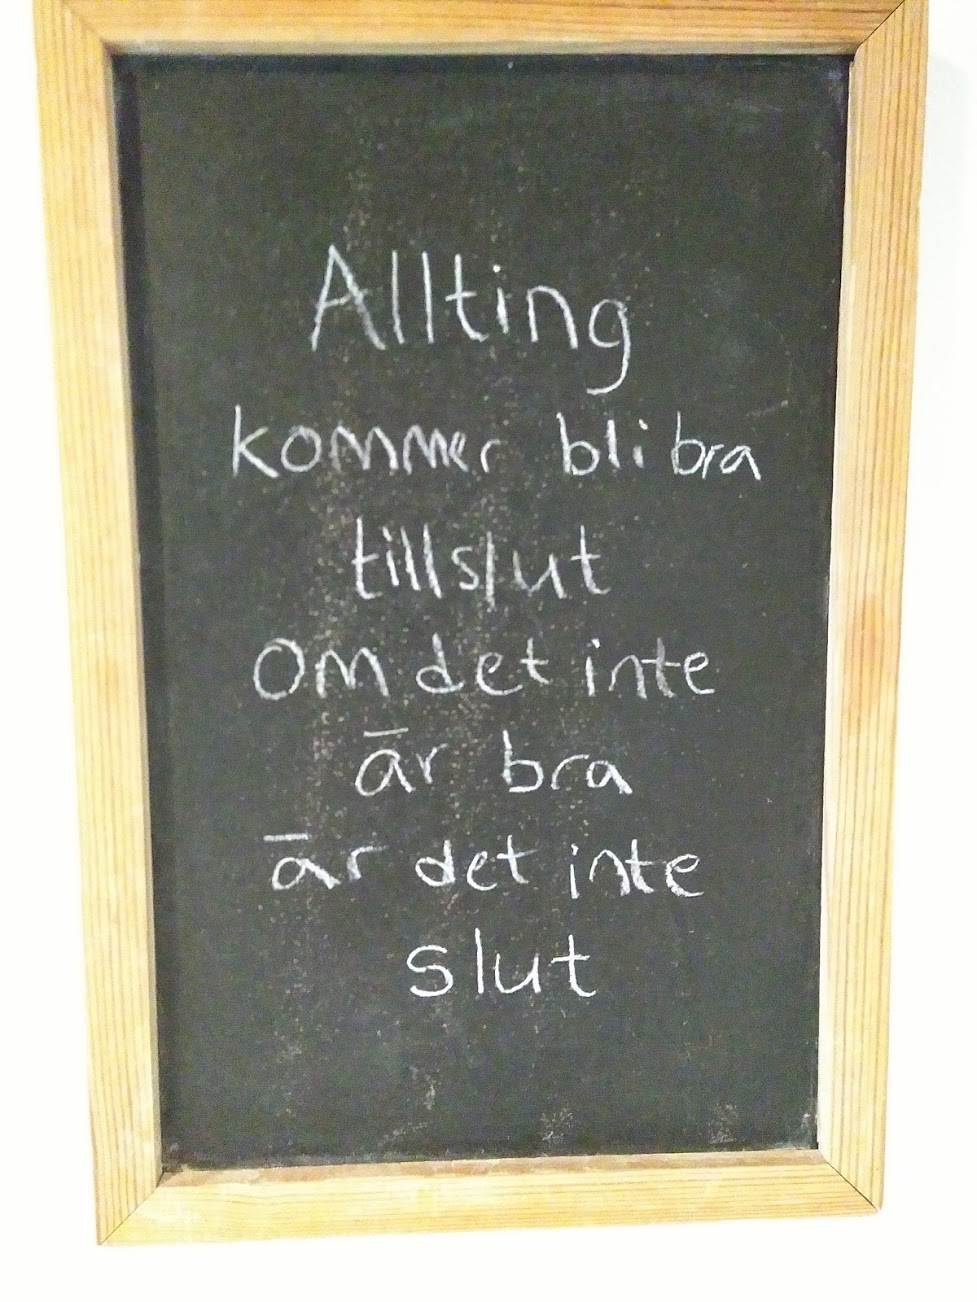 Allting
kommer bli bra
tillslut
Om det inte
är bra
är det inte
slut